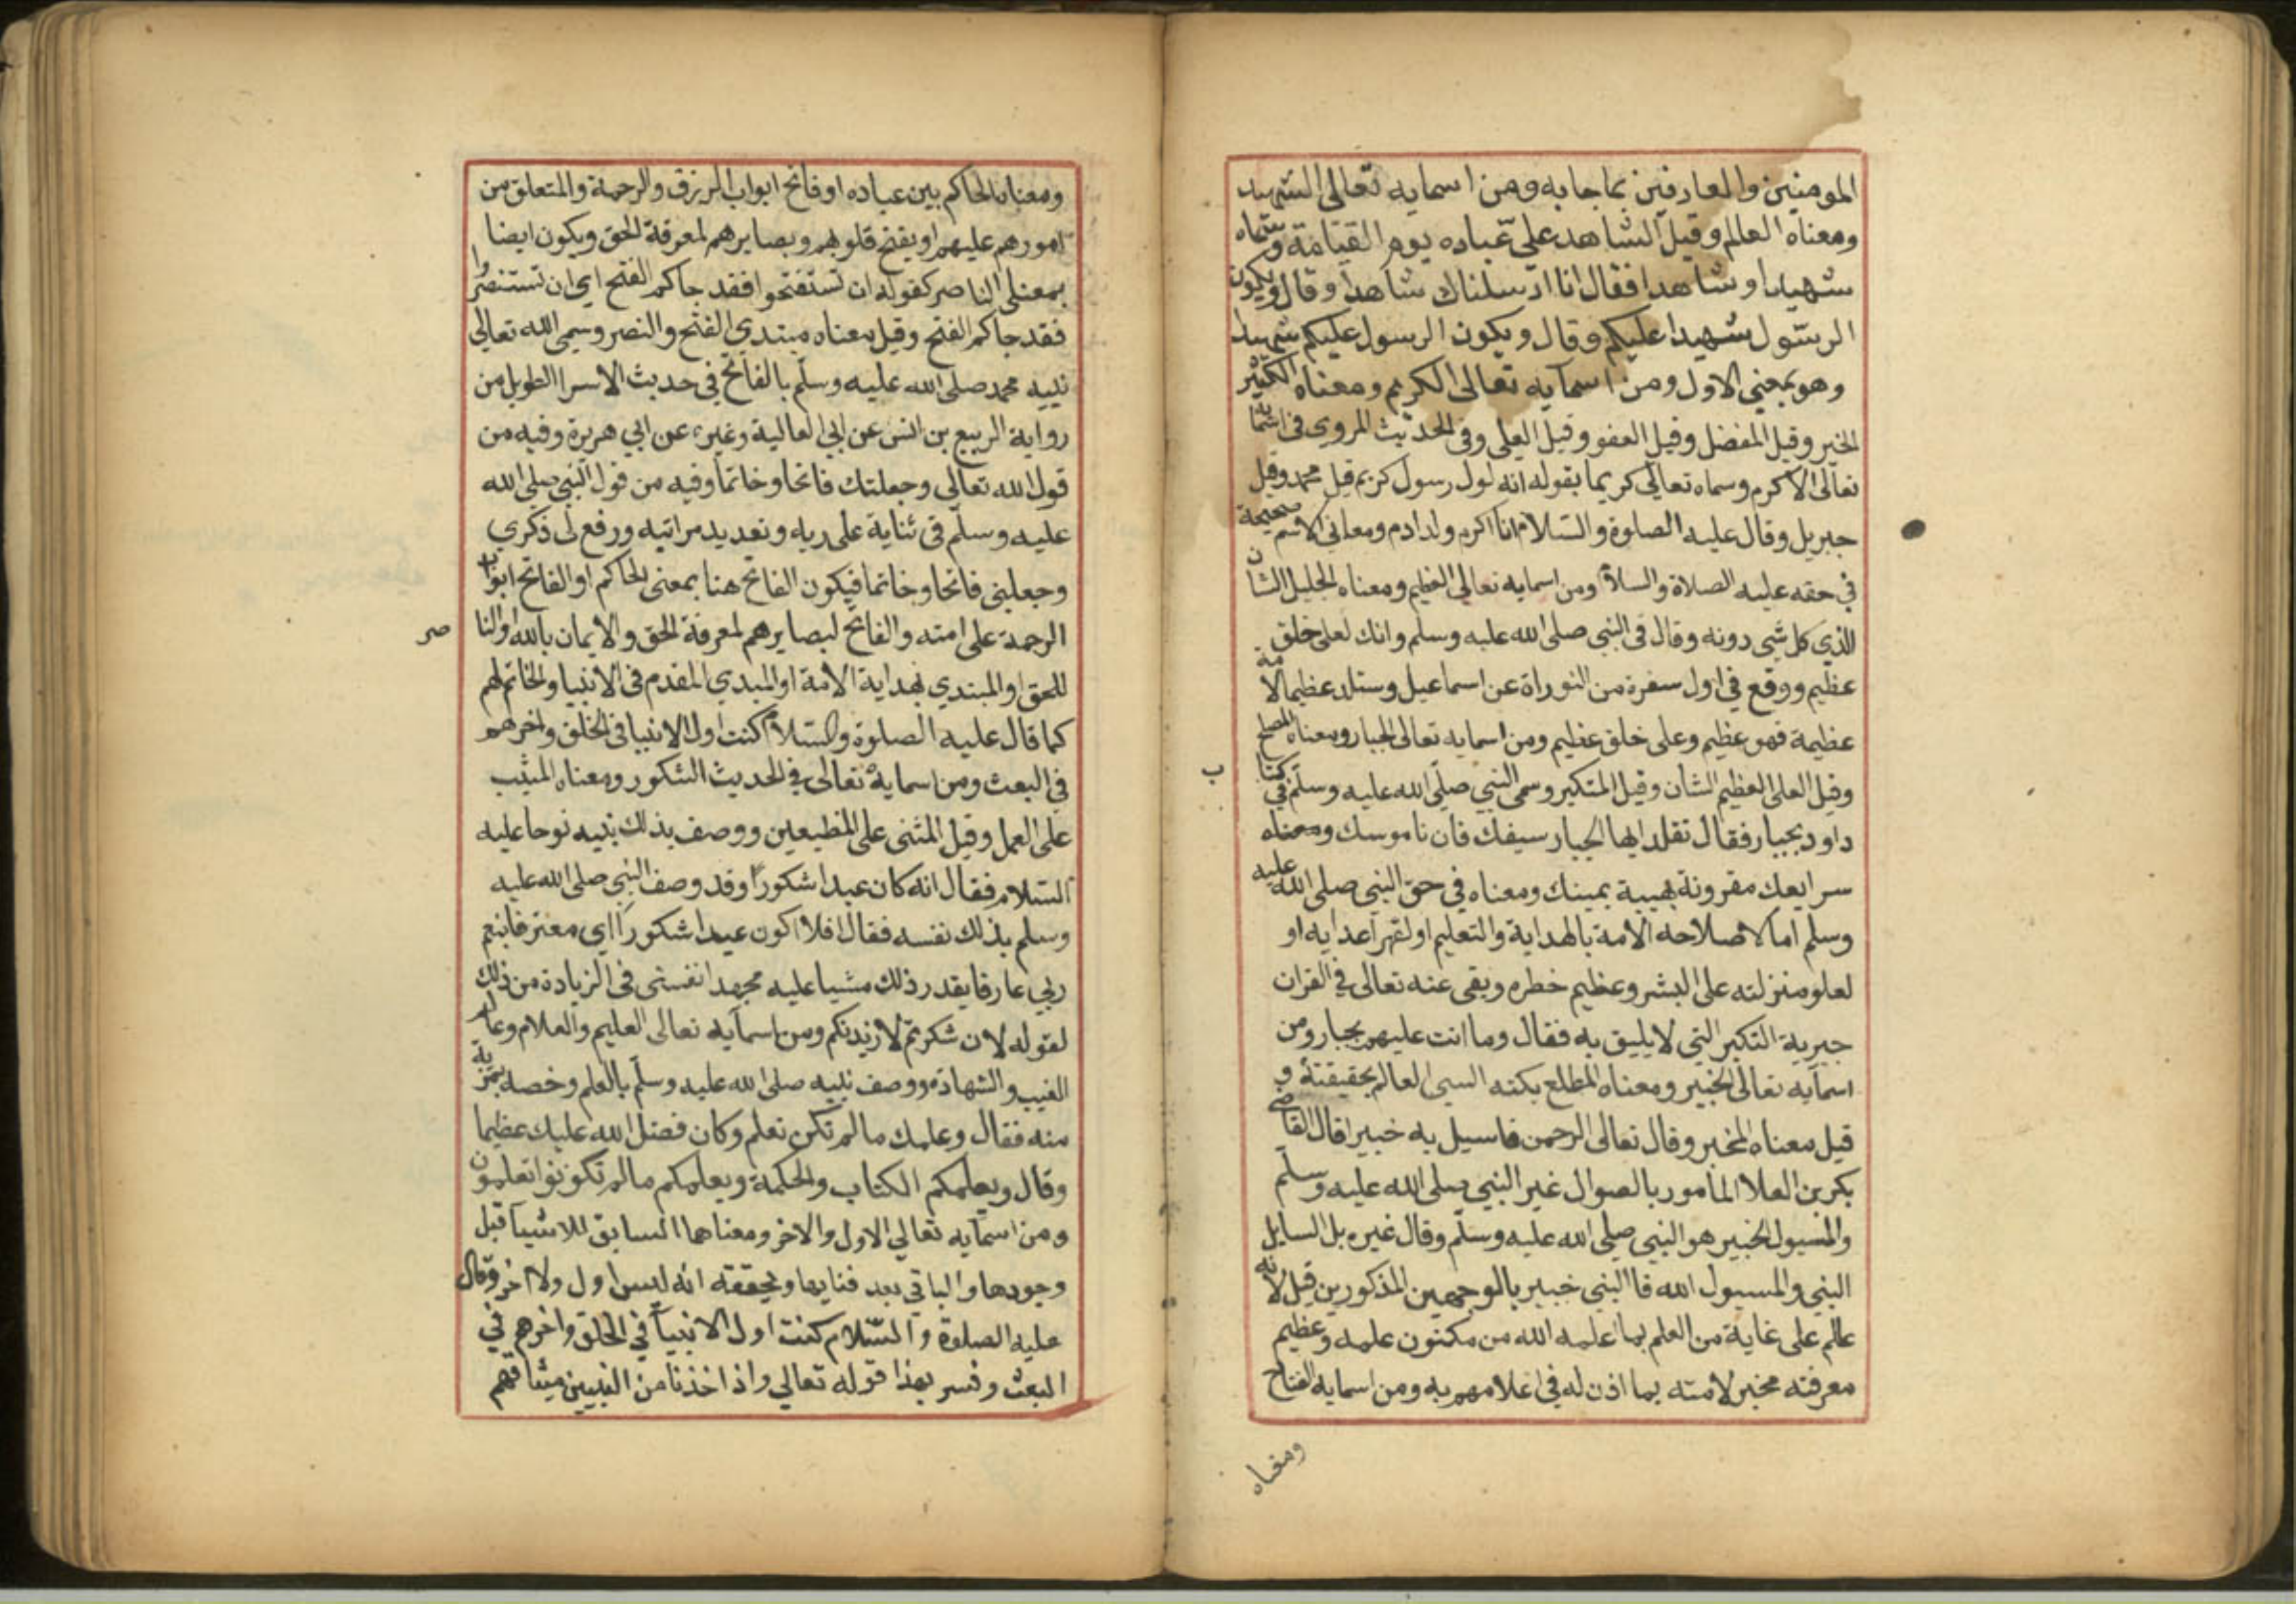 المومنين والعارفين بما جا به ومن اسمايه تعالى الشهيد
ومعناه العالم وقيل الشاهد على عباده يوم القيامة وسماه
شهيدا وشاهدا فقال انا ارسلناك شاهدا وقال ويكون
الرسول شهيدا عليكم وقال ويكون الرسول عليكم شهيدا
وهو بمعنى الاول ومن اسمايه تعالى الكريم ومعناه الكثير
الخير وقيل المفضل وقيل العفو وقيل العلى وفى الحديث المروى فى اسمايه
تعالى الاكرم وسماه تعالى كريما بقوله انه لول رسول كريم قيل محمد وقيل
جبريل وقال عليه الصلوة والسلام انا اكرم ولد ادم ومعانى الاسم صحيحة
في حقه عليه الصلاة والسلام ومن اسمايه تعالى العظيم ومعناه الجليل الشان
الذي كل شى دونه وقال فى النبى صلى الله عليه وسلم وانك لعلى خلق
عظيم ووقع في اول سفرة من التوراة عن اسماعيل وستلد عظيما لامة
عظيمة فهو عظيم وعلى خلق عظيم ومن اسمايه تعالى الجبار ومعناه المصلح
وقيل العلى العظيم الشان وقيل المتكبر وسمى النبي صلى الله عليه وسلم في كتا
ب
داود بجبار فقال تقلد ايها الجبار سيفك فان ناموسك ومعناه
سرايعك مقرونة بهيبة يمينك ومعناه في حق النبي صلى الله عليه
وسلم اما لاصلاحه الامة بالهداية والتعليم او لقهر اعدايه او
لعلو منزلته على البشر وعظيم خطره ونفى عنه تعالى في القران
جبرية التكبر التي لا يليق به فقال وما انت عليهم بجبار ومن
اسمايه تعالى الخبير ومعناه المطلع بكنه السي العالم بحقيقته و
قيل معناه المخبر وقال تعالى الرحمن فاسيل به خبيرا قال القاضى
بكر بن العلا المامور بالسوال غير النبي صلى الله عليه وسلم
والمسيول الخبير هو النبي صلى الله عليه وسلم وقال غيره بل السايل
النبي والمسيول الله فا النبي خبير بالوجهين المذكورين قيل لانه
عالم على غاية من العلم بما اعلمه الله من مكنون علمه وعظيم
معرفته مخبر لامته بما اذن له في اعلامهم به ومن اسمايه الفتاح
ومعناه
ومعناه الحاكم بين عباده او فاتح ابواب الرزق والرحمة والمتعلق من
امورهم عليهم او يفتح قلوبهم وبصايرهم لمعرفة الحق ويكون ايضا
بمعنى الناصر كقوله ان تستفتحوا فقد جاكم الفتح اي ان تستنصروا
فقد جاكم الفتح وقيل معناه مبتدي الفتح والنصر وسمى الله تعالى
نبيه محمد صلى الله عليه وسلم بالفاتح في حديث الاسرا الطويل من
رواية الربيع بن انس عن ابي العالية وغيره عن ابي هريرة وفيه من
قول الله تعالى وجعلتك فاتحا وخاتما وفيه من قول النبي صلى الله
عليه وسلم فى ثناية على ربه وتعديد مراتبه ورفع لى ذكري
وجعلنى فاتحا وخاتما فيكون الفاتح هنا بمعنى الحاكم او الفاتح ابواب
الرحمة على امته والفاتح لبصايرهم لمعرفة الحق والايمان بالله او النا
صر
للحق او المبتدي بهداية الامة او المبدي المقدم فى الانبيا والخاتم لهم
كما قال عليه الصلوة والسلام كنت اول الانبيا فى الخلق واخرهم
في البعث ومن اسمايه تعالى في الحديث الشكور ومعناه المثيب
على العمل وقيل المثنى على المطيعين ووصف بذلك نبيه نوحا عليه
السلام فقال انه كان عبدا شكورا وقد وصف النبي صلى الله عليه
وسلم بذلك نفسه فقال افلا اكون عبدا شكورا اي معترفا بنعم
ربي عارفا بقدر ذلك مثنيا عليه مجهدا نفسى فى الزيادة من ذلك
لقوله لان شكرتم لازيدنكم ومن اسمايه تعالى العليم والعلام وعالم
الغيب والشهادة ووصف نبيه صلى الله عليه وسلم بالعلم وخصه بمزية
منه فقال وعلمك مالم تكن تعلم وكان فضل الله عليك عظيما
وقال ويعلمكم الكتاب والحكمة ويعلمكم مالم تكونوا تعلمون
ومن اسمايه تعالى الاول والاخر ومعناهما السابق للاشيا قبل
وجودها والباقى بعد فنايها وتحقيقه انه ليس اول ولا اخر وقال
عليه الصلوة والسلام كنت اول الانبيا في الخلق واخرهم في
البعث وفسر بهذا قوله تعالى واذ اخذنا من النبيين ميثاقهم